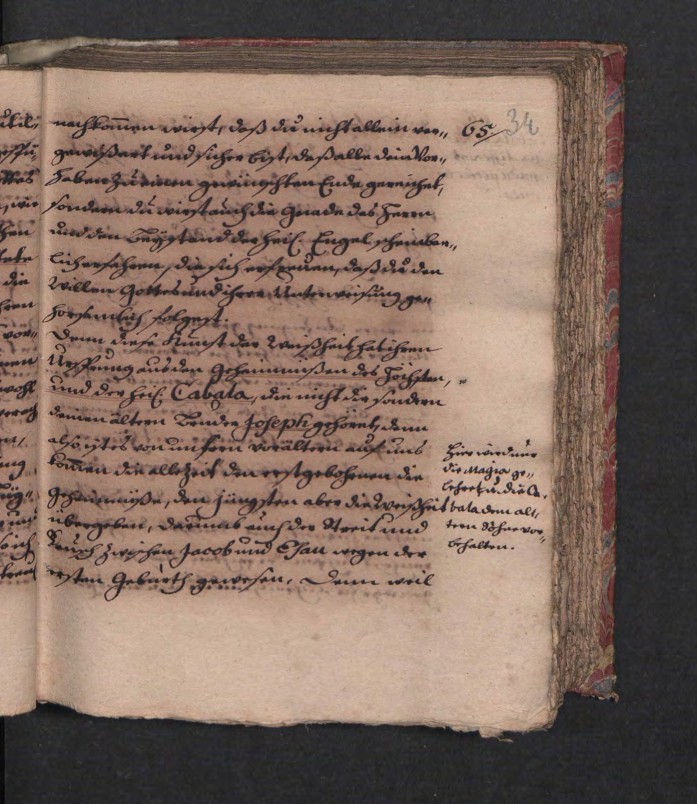 nachkom̄en wirst, daß du nicht allein ver-
gewißert und sicher bist, daß alle dein Vor-
haben zu einen gewünschten Ende gereichet,
sondern du wirst auch die Gnade des Herrn
und den Beystand der heil. Engel scheinbar-
lich erfahren, die sich erfreuen, daß du den
Willen Gottes und ihrer Unterweisung ge-
horsamlich folgest.
Denn diese Kunst der Weißheit hat ihren
Ursprung aus den Geheimnißen des Höchsten,
und der heil. Cabala, die nicht dir sondern
deinen ältern Bruder Joseph gehöret, denn
also ist es von unsern Vorältern auf uns
kom̄en die allezeit den erstgebohrnen die
Geheimniße, den jüngsten aber die Weißheit
übergeben, darum auch der Streit und
zwischen Jacob und Esau wegen der
ersten Geburth gewesen. Denn weil
65/
34
Hier wird nur
die Magia ge-
lehret, u. die Ca-
bala dem äl-
tern Sohne vor-
behalten.